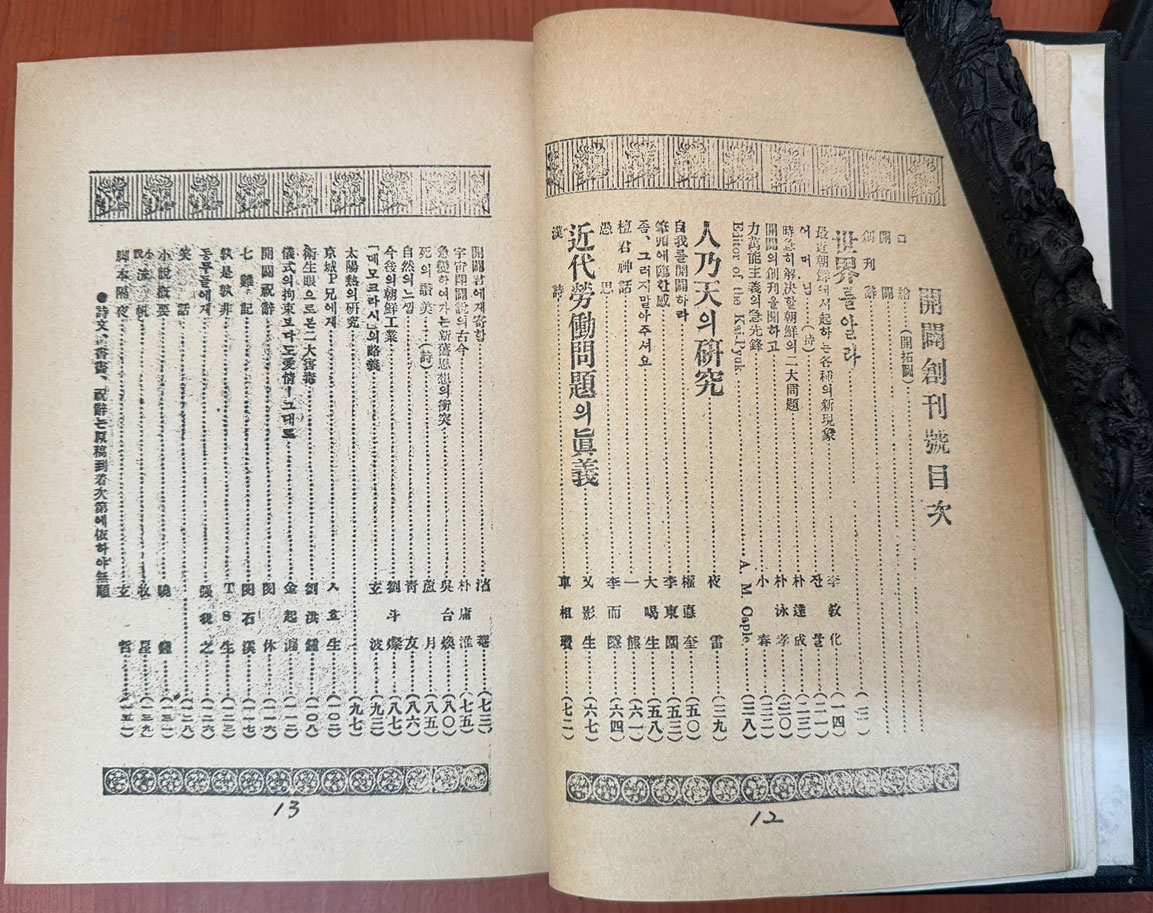 開闢創刊號目次
口繪(開拓圖)
開闢
創刊辭
世界를알라
最近朝鮮에서起하는各種의新現象 李敦化 (一四)
어머님(詩) 잔물 (二一)
時急히解決할朝鮮의二大問題 朴達成 (二三)
開闢의創刊을聞하고 朴泳孝 (三〇)
力萬能主義의急先鋒 小春 (三二)
Editor of the Kai-Pyuk A. M. Caple (三八)
人乃天의硏究 夜雷 (三九)
自我를開闢하라 權悳奎 (五〇)
第四에臨한感 李東園 (五三)
좀、그러지말아주셔요 大喝生 (五八)
檀君神話 一熊 (六一)
愚思 李而隱 (六四)
近代勞働問題의眞義 又影生 (六七)
漢詩 車相瓚 (七二)
12
開闢君에게寄함 (七三)
宇宙開闢說의古今 朴庸淮 (七五)
急變하여가는新舊思想의衝突 吳台煥 (八〇)
死의讚美(詩) 蘆月 (八五)
自然의느낌 青友 (八六)
今後의朝鮮工業 劉斗燦 (八七)
「데모크라시」의略義 玄波 (九三)
太陽熱의硏究 (九七)
京城P兄에게 ㅅㅎ生 (一〇三)
衛生眼으로본二大害毒 劉洪鍾 (一〇八)
儀式의拘束보다도愛情ㅣ그대로 (一一二)
開闢祝辭 閔休 (一一六)
七難記 閔石溪 (一一七)
孰是孰非 TS生 (一二三)
동무들에게 張我之 (一二六)
笑話 (一二八)
小說槪要 曉鍾 (一三一)
小說流帆 牧星 (一三九)
脚本陽夜 玄哲
●詩文、書畵、祝辭는原稿到着次第에依하야無順
13